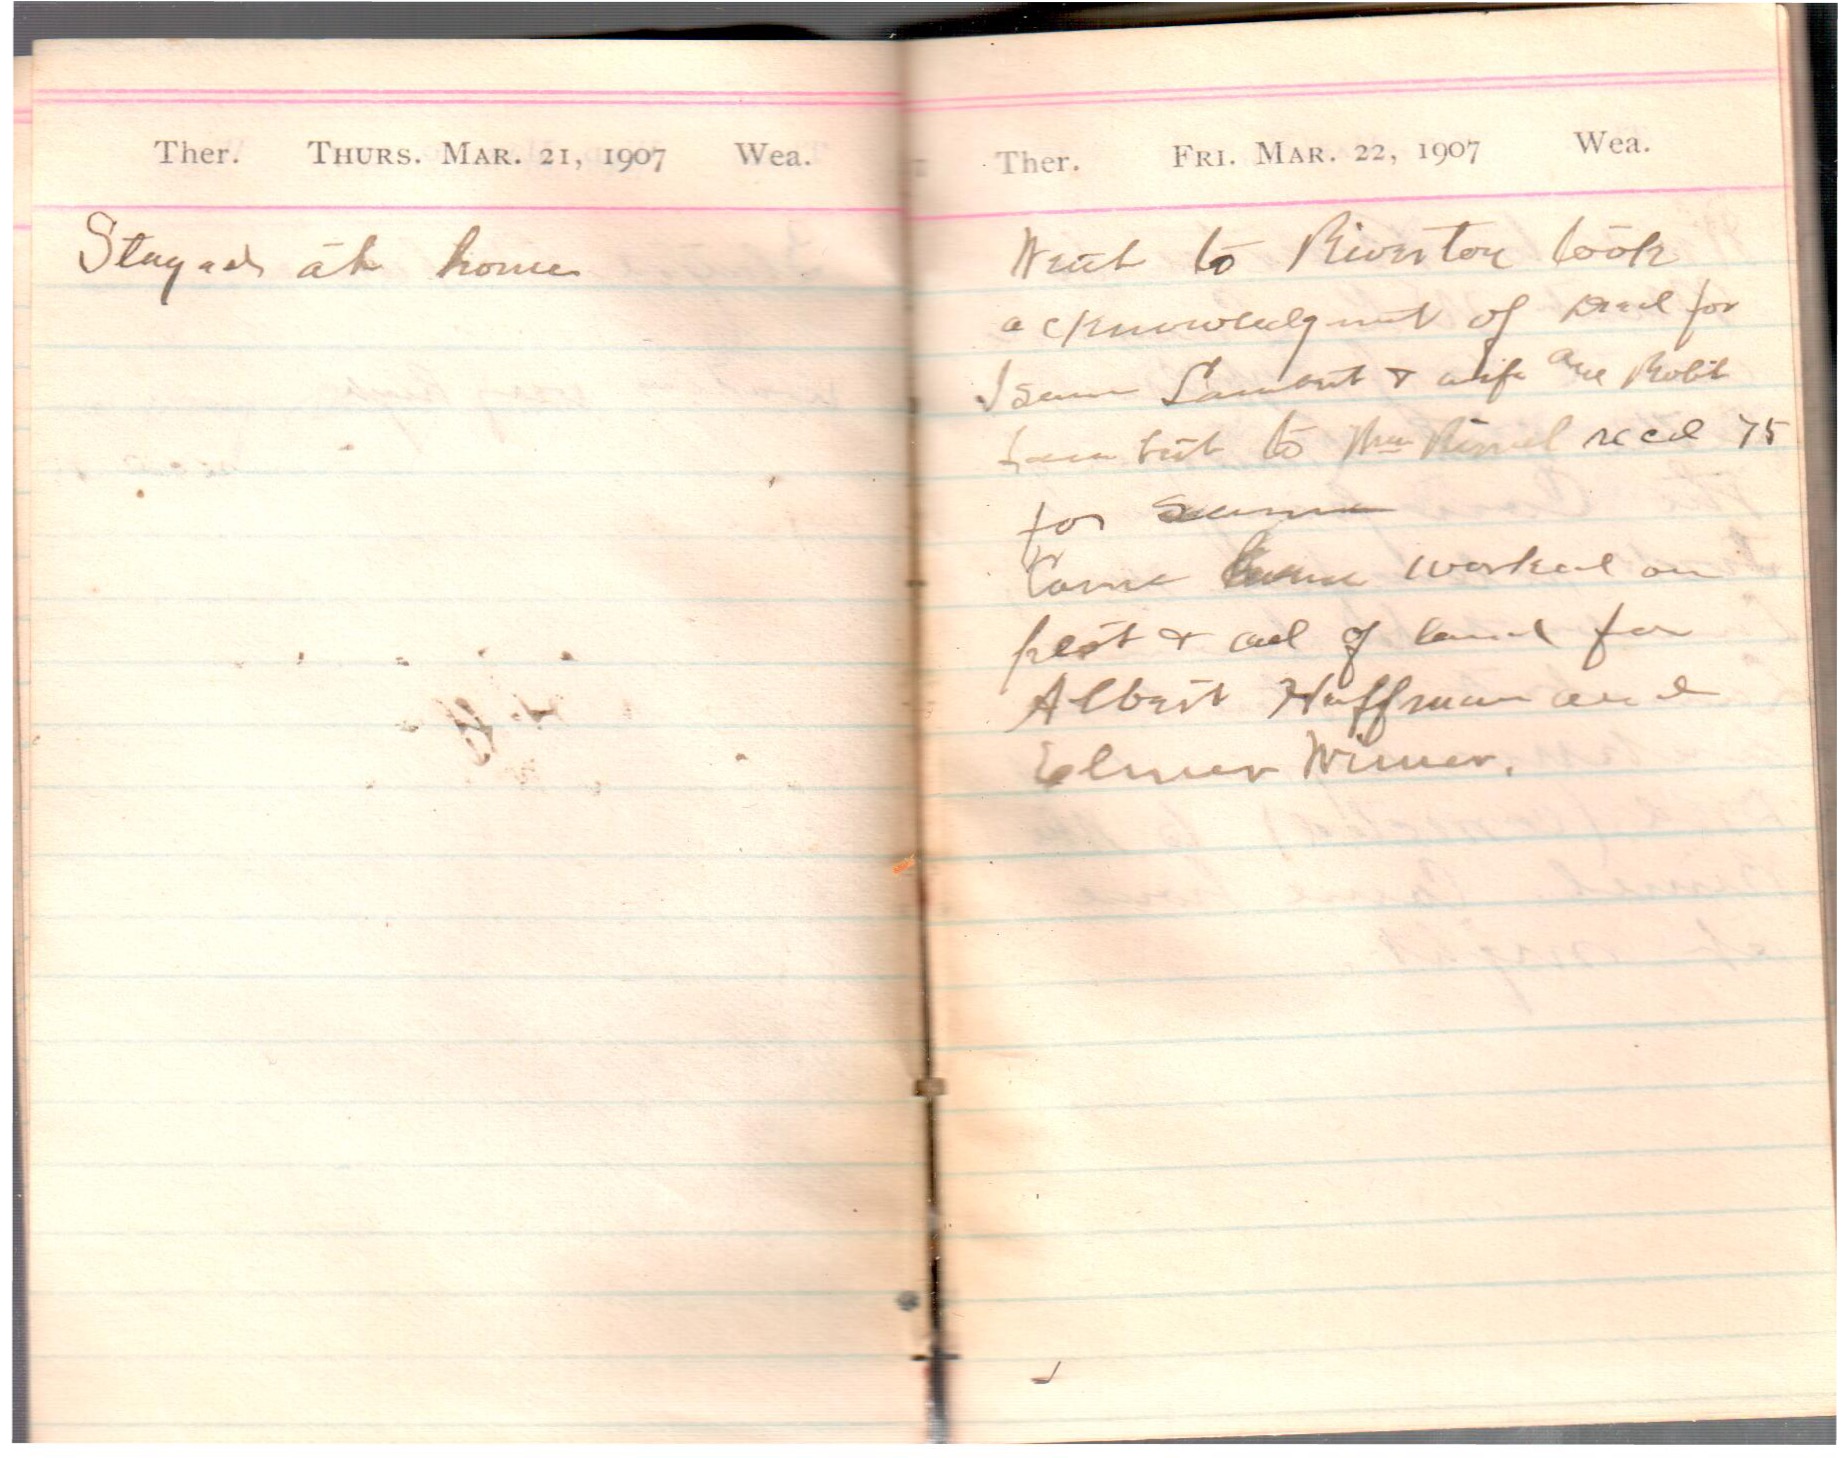 Ther. THURS. MAR. 21, 1907 Wea.
Stayed at home
Ther. FRI. MAR. 22, 1907 Wea.
Went to Riverton took
acknowledgment of Deed for
Isom Lambert & wife and Robt
Lambert to Wm recd 75
for same
Came home worked on
plot & of land for
Albert Huffman and
Elmer Wimer.